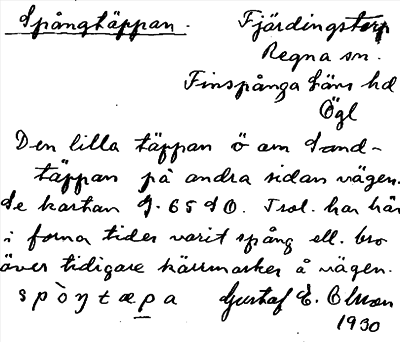 Spångtäppan. Fjärdingstorp
Regna sn.
Finspånga läns hd
Ögl
Den lilla täppan ö om Sand-
täppan på andra sidan vägen.
Se kartan J. 65 SO. Trol. har här
i forna tider varit spång ell. bro
över tidigare kärrmarker å vägen.
spòŋtæpa Gustaf E. Olsson
1930